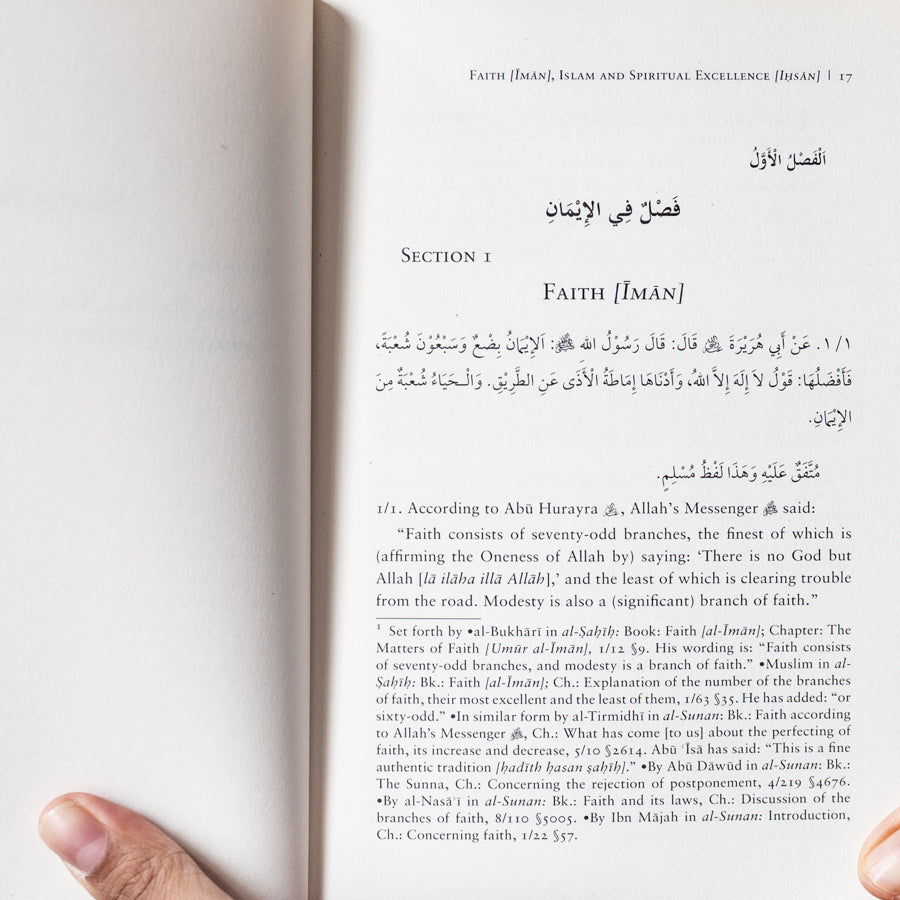 FAITH [ĪMĀN], ISLAM AND SPIRITUAL EXCELLENCE [IḤSĀN] | 17
اَلْفَصْلُ الْأَوَّلُ
فَصْلٌ فِي الإِيْمَانِ
SECTION 1
FAITH [ĪMĀN]
١/١. عَنْ أَبِي هُرَيْرَةَ ؓ قَالَ: قَالَ رَسُوْلُ الله ﷺ: اَلإِيْمَانُ بِضْعٌ وَسَبْعُوْنَ شُعْبَةً،
فَأَفْضَلُهَا: قَوْلُ لاَ إِلَهَ إِلاَّ اللهُ، وَأَدْنَاهَا إِمَاطَةُ الْأَذَى عَنِ الطَّرِيْقِ. وَالْـحَيَاءُ شُعْبَةٌ مِنَ
الإِيْمَانِ.
مُتَّفَقٌ عَلَيْهِ وَهَذَا لَفْظُ مُسْلِمٍ.
1/1. According to Abū Hurayra ؓ, Allah's Messenger ﷺ said:
“Faith consists of seventy-odd branches, the finest of which is
(affirming the Oneness of Allah by) saying: ‘There is no God but
Allah [lā ilāha illā Allāh],’ and the least of which is clearing trouble
from the road. Modesty is also a (significant) branch of faith.”
1 Set forth by •al-Bukhārī in al-Ṣaḥīḥ: Book: Faith [al-Īmān]; Chapter: The
Matters of Faith [Umūr al-Īmān], 1/12 §9. His wording is: “Faith consists
of seventy-odd branches, and modesty is a branch of faith.” •Muslim in al-
Ṣaḥīḥ: Bk.: Faith [al-Īmān]; Ch.: Explanation of the number of the branches
of faith, their most excellent and the least of them, 1/63 §35. He has added: “or
sixty-odd.” •In similar form by al-Tirmidhī in al-Sunan: Bk.: Faith according
to Allah's Messenger ﷺ, Ch.: What has come [to us] about the perfecting of
faith, its increase and decrease, 5/10 §2614. Abū ʿĪsā has said: “This is a fine
authentic tradition [ḥadīth ḥasan ṣaḥīḥ].” •By Abū Dāwūd in al-Sunan: Bk.:
The Sunna, Ch.: Concerning the rejection of postponement, 4/219 §4676.
•By al-Nasāʾī in al-Sunan: Bk.: Faith and its laws, Ch.: Discussion of the
branches of faith, 8/110 §5005. •By Ibn Mājah in al-Sunan: Introduction,
Ch.: Concerning faith, 1/22 §57.